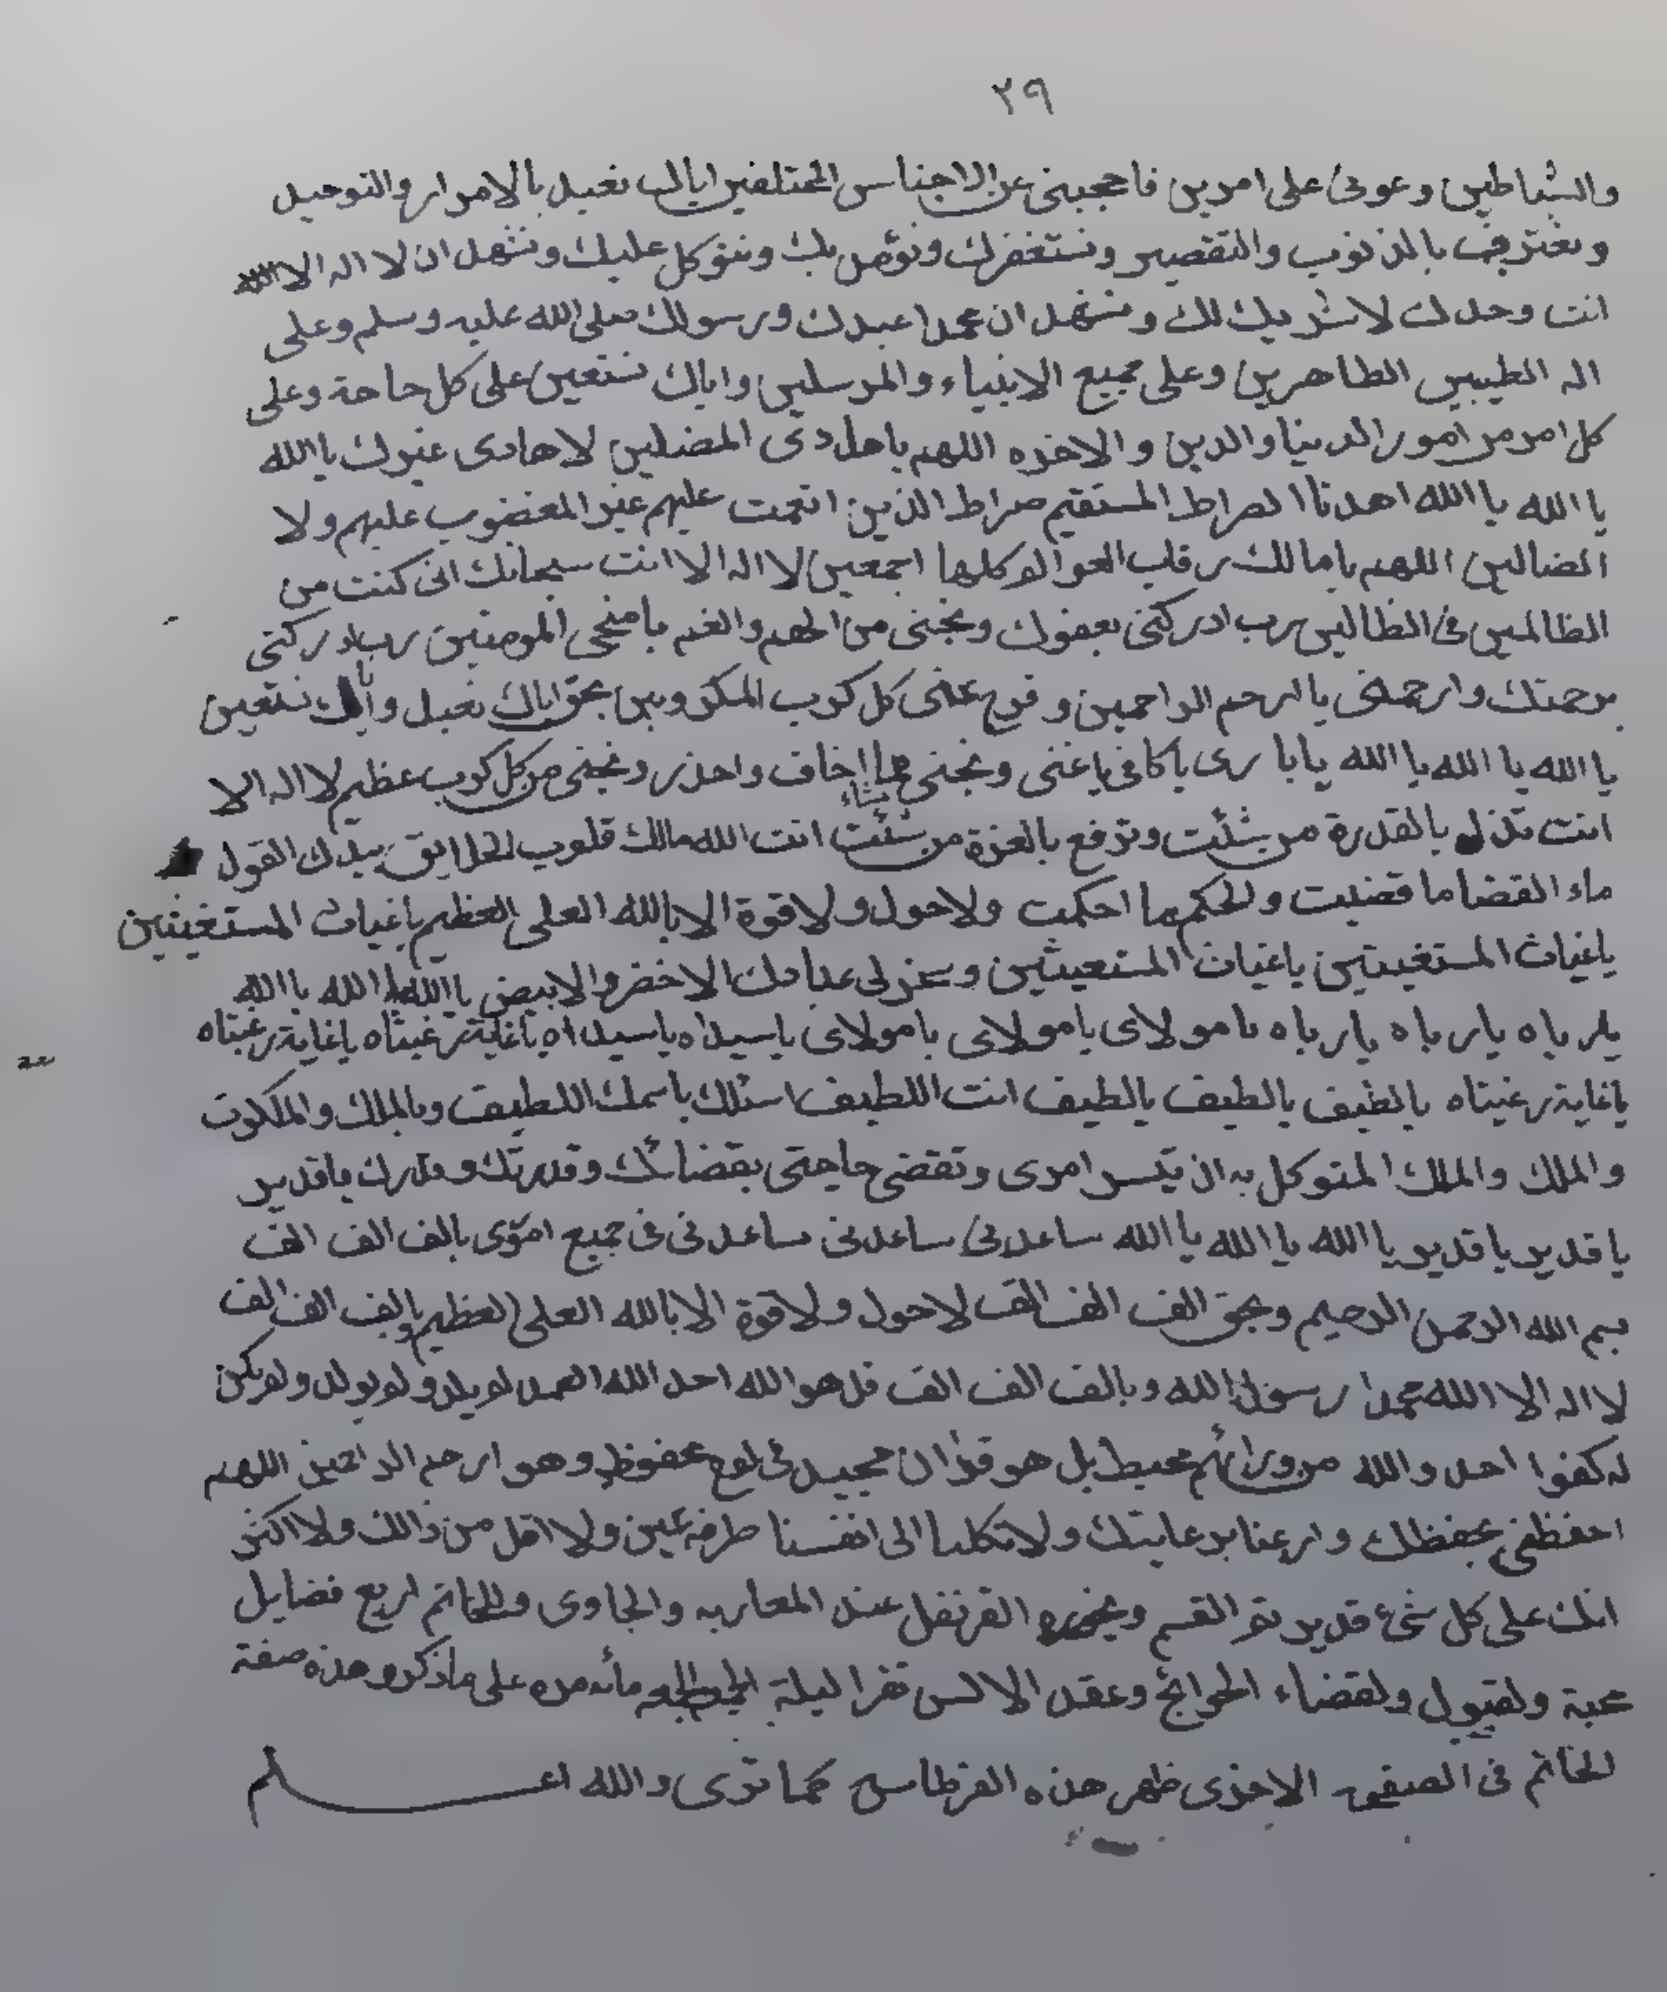 ٢٩
والشياطين وعونى على امرين فاحجبنى عن الاجناس المختلفين اياك نعبد بالامرار والتوحيد
ونعترف بالذنوب والتقصير ونستغفرك ونؤمن بك ونتوكل عليك ونشهد ان لا اله الا الله
انت وحدك لا شريك لك ونشهد ان محمدا عبدك ورسولك صلى الله عليه وسلم وعلى
اله الطيبين الطاهرين وعلى جميع الانبياء والمرسلين واياك نستعين على كل حاجة وعلى
كل امر من امور الدنيا والدين والاخره اللهم ياهادى المضلين لا هادى غيرك يا الله
يا الله يا الله اهدنا الصراط المستقيم صراط الذين انعمت عليهم غير المغضوب عليهم ولا
الضالين اللهم يا مالك رقاب العوالم كلها اجمعين لا اله الا انت سبحانك انى كنت من
الظالمين فى الطالبين رب ادركنى بعفوك ونجنى من الهم والغم يا منجى المومنين رب ادركنى
برحمتك وارحمنى يا ارحم الراحمين وفرج عنى كل كرب المكروبين بحق اياك نعبد واياك نستعين
يا الله يا الله يا الله يا بارى يا كافى يا غنى ونجنى مما اخاف واحذر ونجنى من كل كرب عظيم لا اله الا
انت تذل بالقدرة من شئت وترفع بالعزة من شئت تشاء انت الله مالك قلوب الخلايق بيدك القول
ماء القضا ما قضيت والحكم ما احكمت ولا حول ولا قوة الا بالله العلى العظيم ياغياث المستغيثين
ياغياث المستغيثين ياغياث المستغيثين وسخر لى عبادك الاخضر والابيض يا الله يا الله يا الله
يارباه يارباه يارباه يامولاى يامولاى يامولاى ياسيداه ياسيداه ياغاية رغبتاه ياغاية رغبتاه
ياغاية رغبتاه يالطيف يالطيف يالطيف انت اللطيف اسئلك باسمك اللطيف وبالملك والملكوت
والملك والملك المتوكل به ان تيسر امرى وتقضى حاجتى بقضائك وقدرتك وقدرك ياقدير
ياقدير ياقدير يا الله يا الله يا الله ساعدنى ساعدنى ساعدنى فى جميع امورى بالف الف الف
بسم الله الرحمن الرحيم وبحق الف الف الف لاحول ولا قوة الا بالله العلى العظيم وبالف الف الف
لا اله الا الله محمدا رسول الله وبالف الف الف قل هو الله احد الله الصمد لم يلد ولم يولد ولم يكن
له كفوا احد والله من ورائهم محيط بل هو قرأن مجيد فى لوح محفوظ وهو ارحم الراحمين اللهم
احفظنى بحفظك وارعنا برعايتك ولا تكلنا الى انفسنا طرفه عين ولا اقل من ذالك ولا اكثر
انك على كل شئ قدير تم القسم وبخوره القرنفل عند المغاربه والجاوى وللخاتم اربع فضايل
محبة ولقبول ولقضاء الحوائج وعقد الالس تقرا ليلة الجمعه مأئه مره على ماذكر وهذه صفة
الخاتم فى الصفحه الاخرى ظهر هذه القرطاس كما ترى والله اعلم